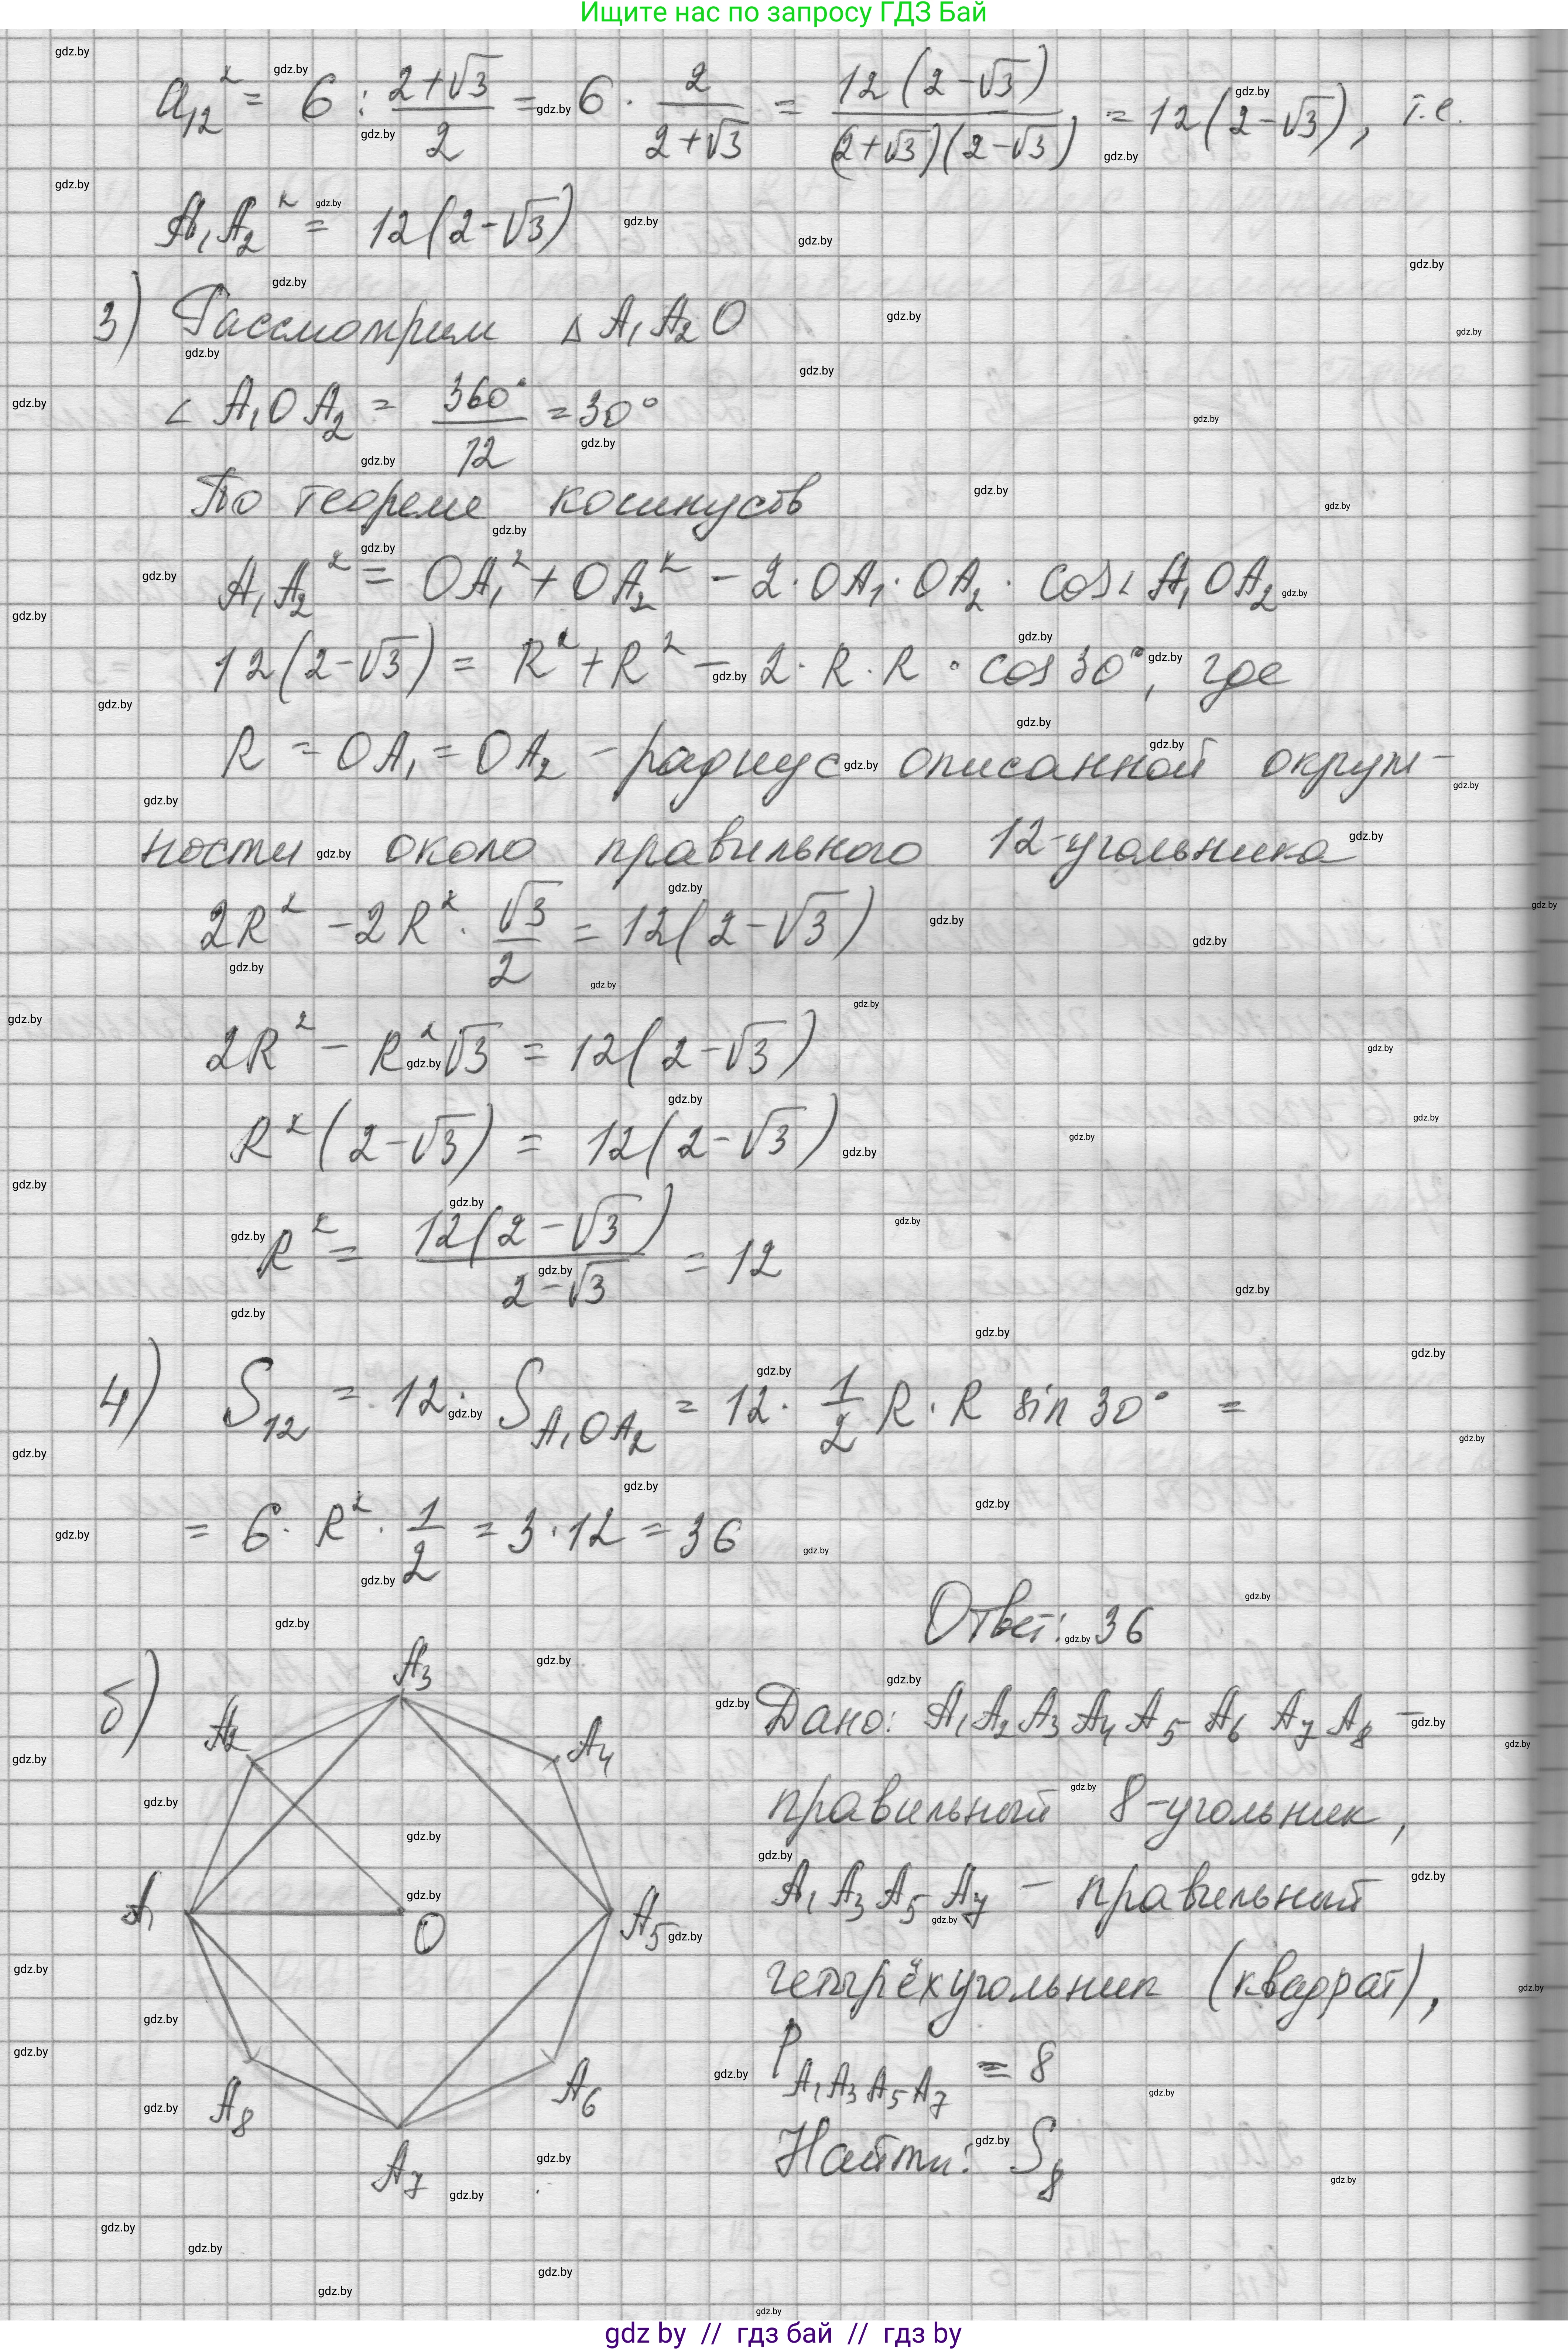 Ищите нас по запросу ГДЗ Бай
a₁₂² = 6 : (2+√3)/2 = 6 · 2/(2+√3) = 12(2-√3)/((2+√3)(2-√3)) = 12(2-√3), т.е.
A₁A₂² = 12(2-√3)
3) Рассмотрим Δ A₁A₂O
∠ A₁OA₂ = 360°/12 = 30°
По теореме косинусов
A₁A₂² = OA₁² + OA₂² - 2·OA₁·OA₂· cos∠A₁OA₂
12(2-√3) = R² + R² - 2·R·R·cos30°, где
R = OA₁ = OA₂ - радиус описанной окруж-
ности около правильного 12-угольника
2R² - 2R² · √3/2 = 12(2-√3)
2R² - R²√3 = 12(2-√3)
R²(2-√3) = 12(2-√3)
R² = 12(2-√3)/(2-√3) = 12
4) S₁₂ = 12· S A₁OA₂ = 12· 1/2 R·R sin 30° =
= 6· R² · 1/2 = 3·12 = 36
Ответ: 36
б) A₃
A₂ A₄
A₁ O A₅
A₈ A₆
A₇
Дано: A₁A₂A₃A₄A₅A₆A₇A₈ -
правильный 8-угольник,
A₁A₃A₅A₇ - правильный
четырёхугольник (квадрат),
P A₁A₃A₅A₇ = 8
Найти: S₈
gdz by // гдз бай // гдз by